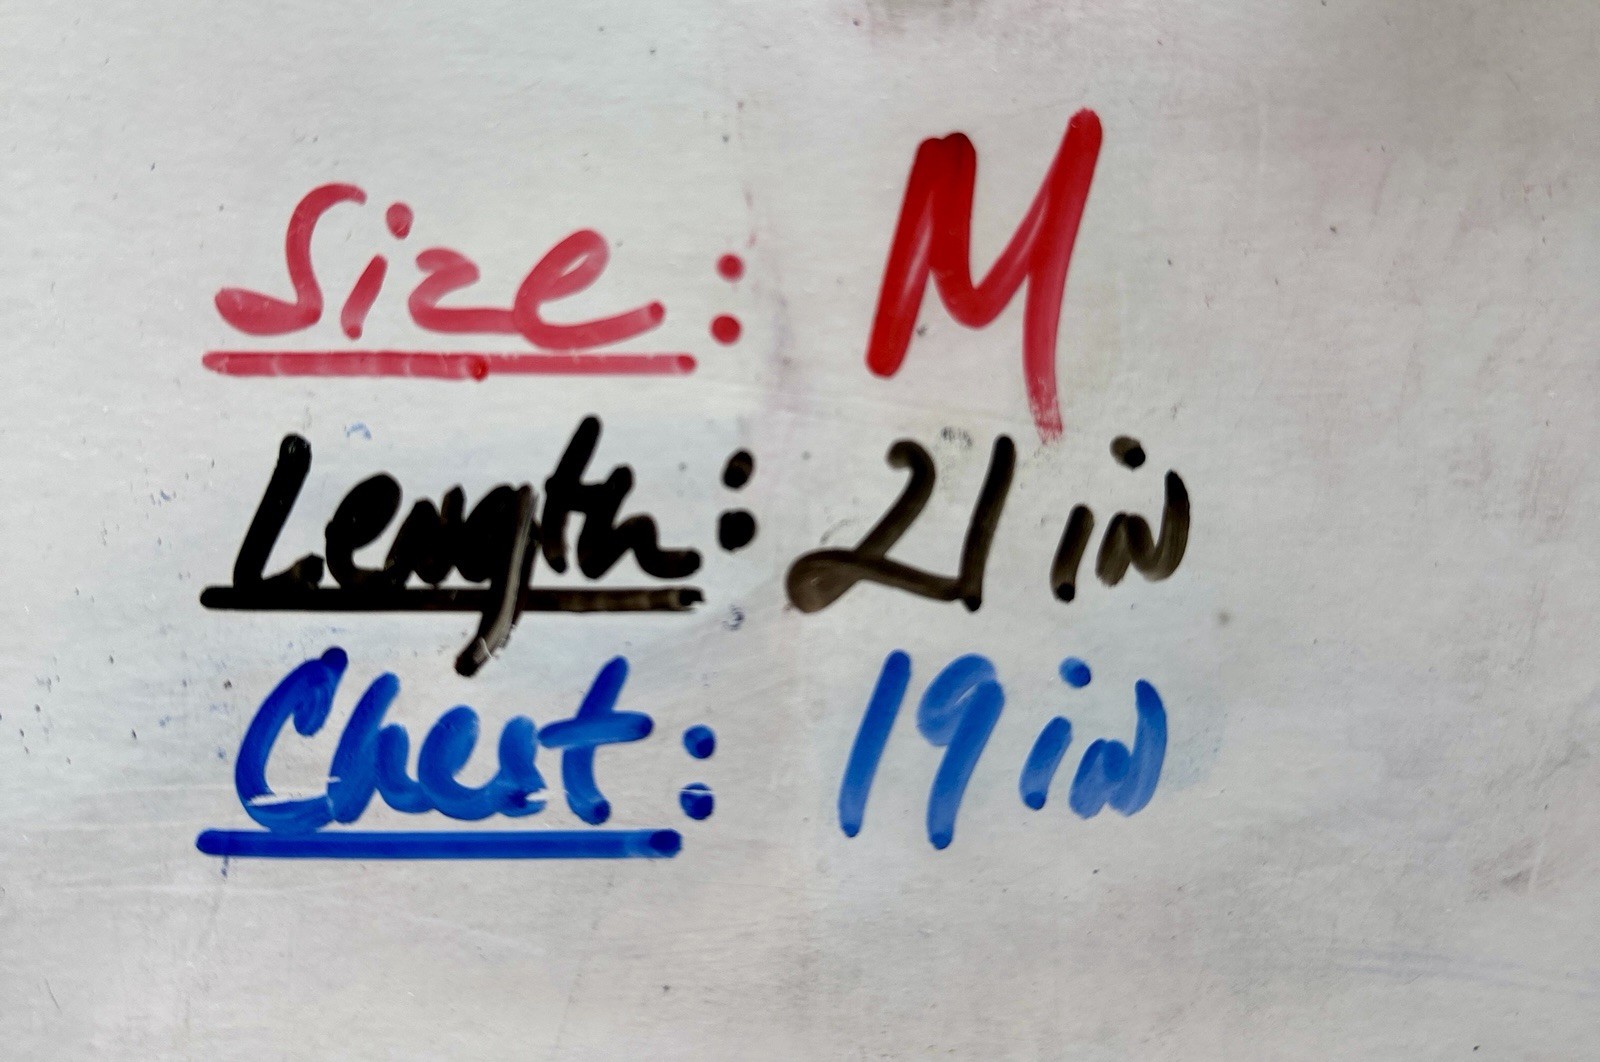 Size: M
Length: 21 in
Chest: 19 in